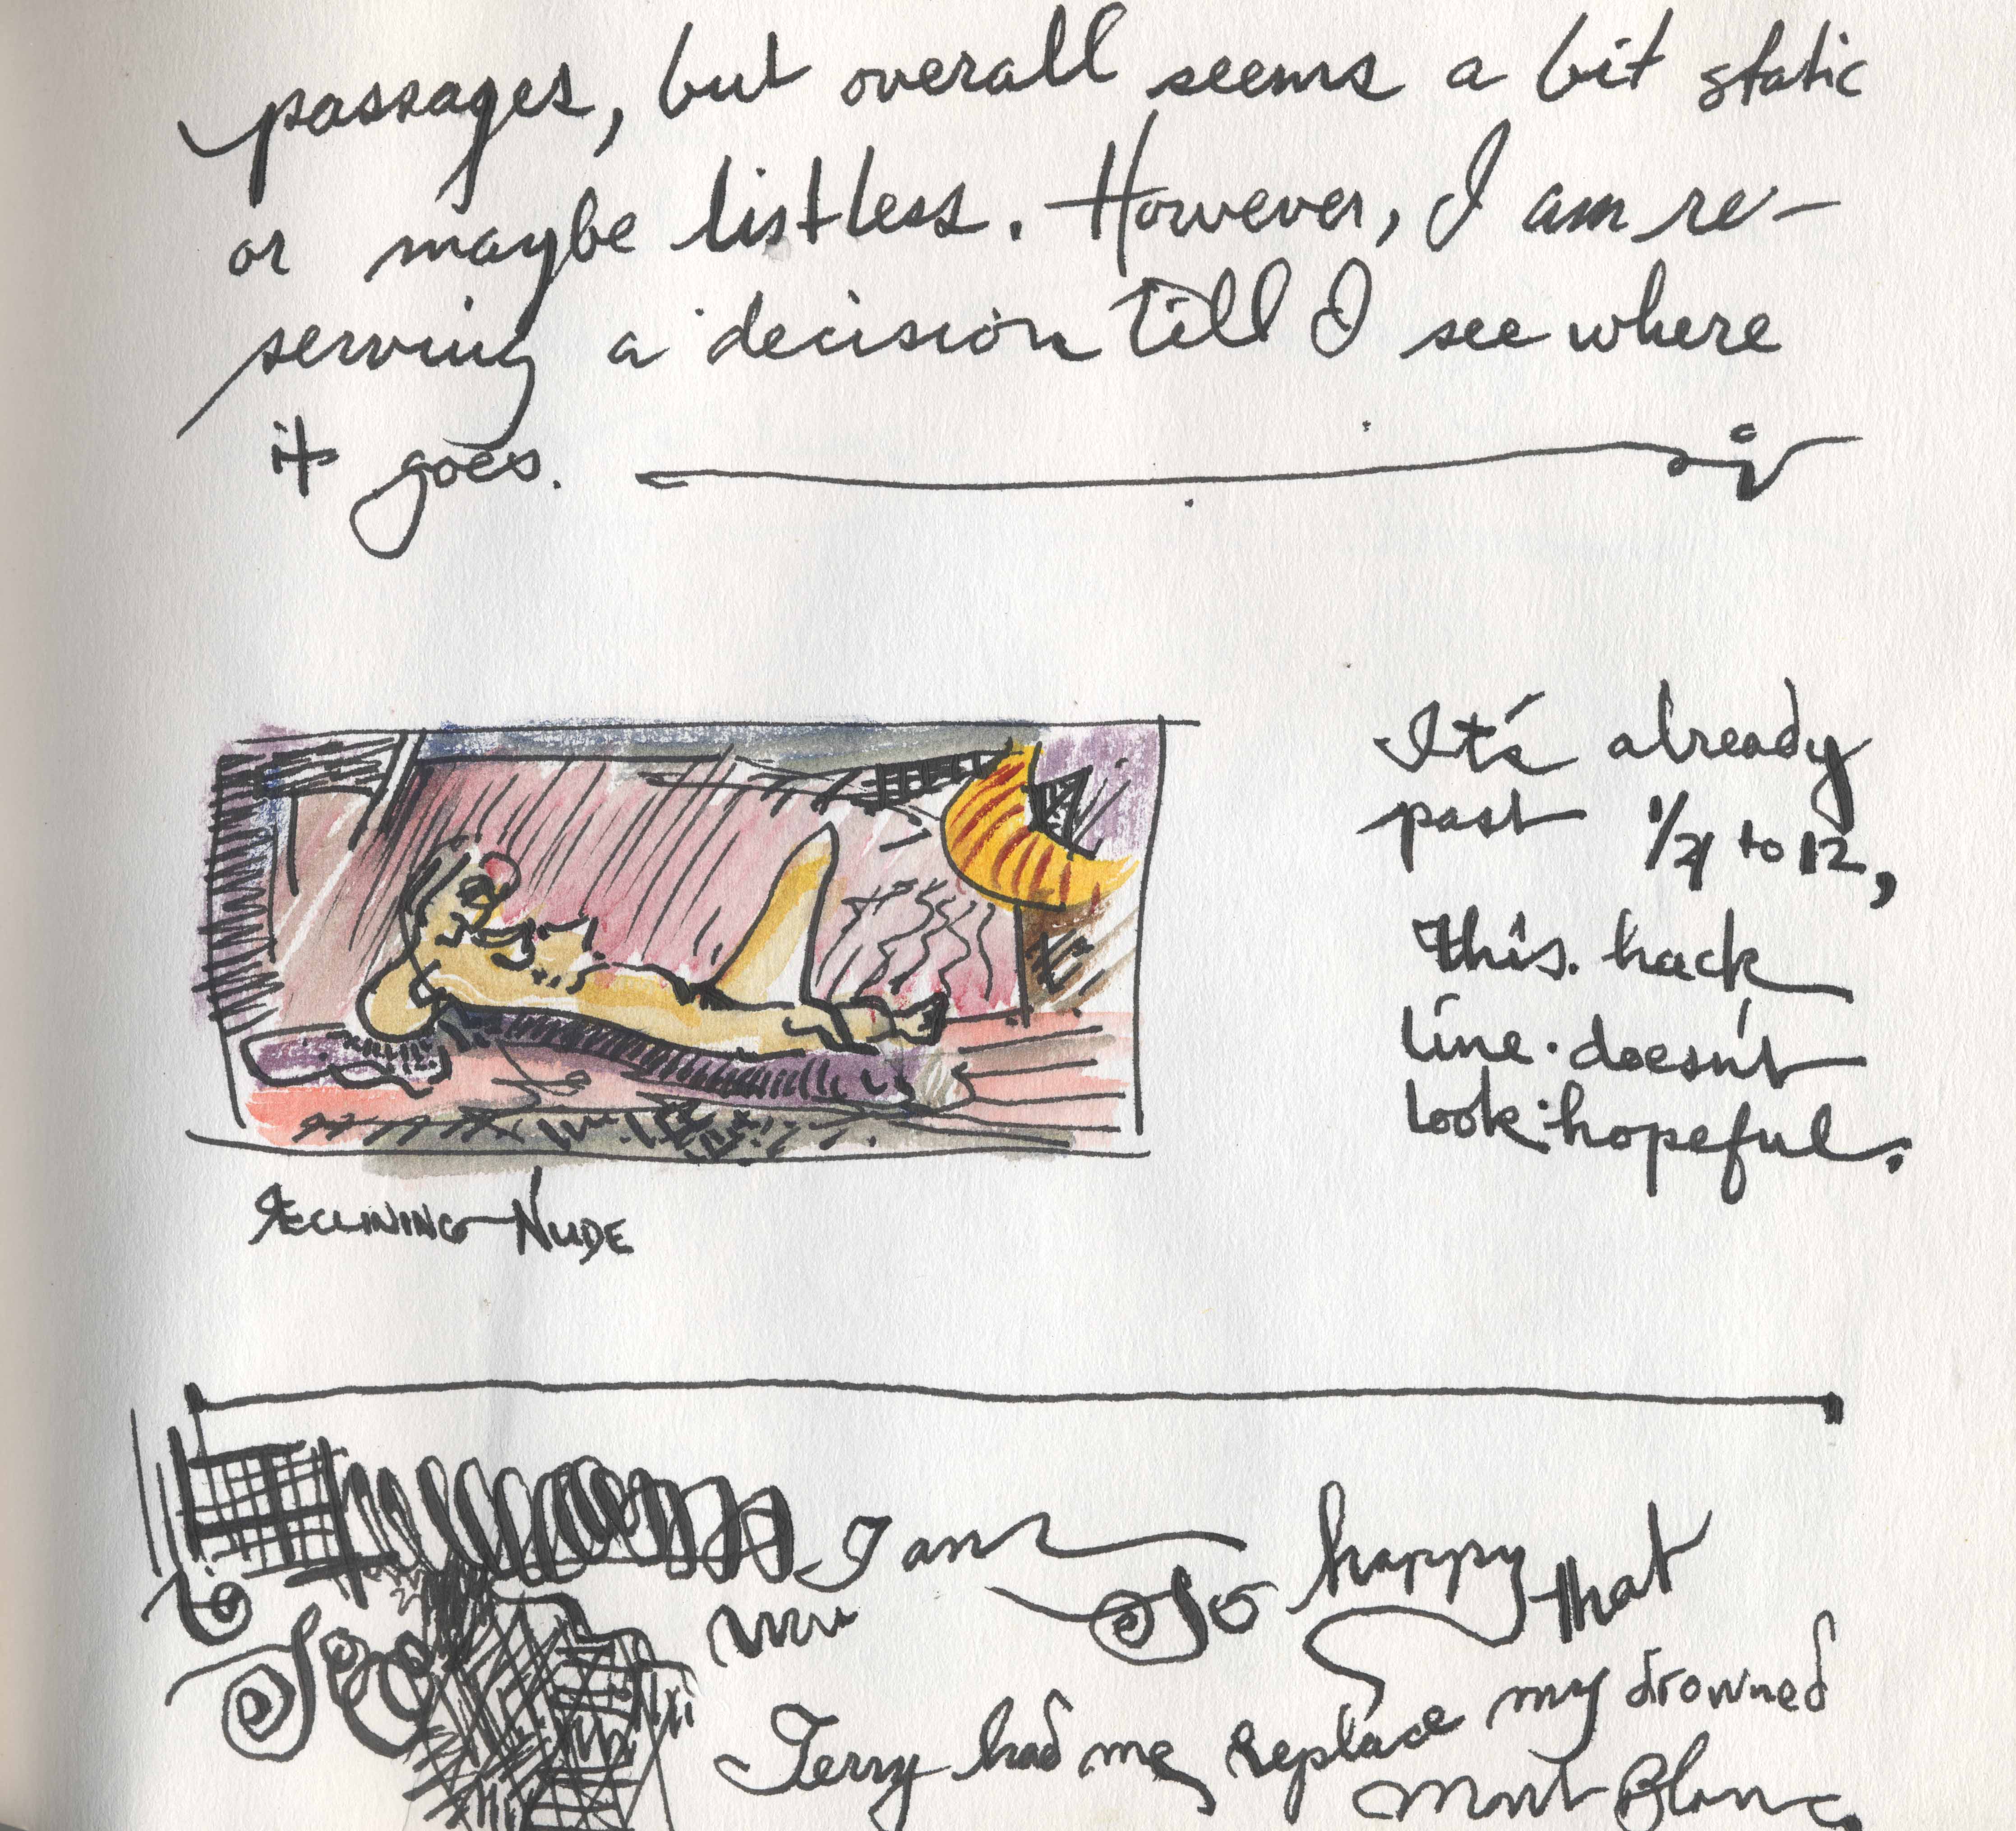 passages, but overall seems a bit static
or maybe listless. However, I am re-
serving a decision till I see where
it goes.
It's already
past 1/4 to 12,
this. hack
line. doesn't
look hopeful.
RECLINING NUDE
I am so happy that
Terry had me replace my drowned
Mont Blanc.